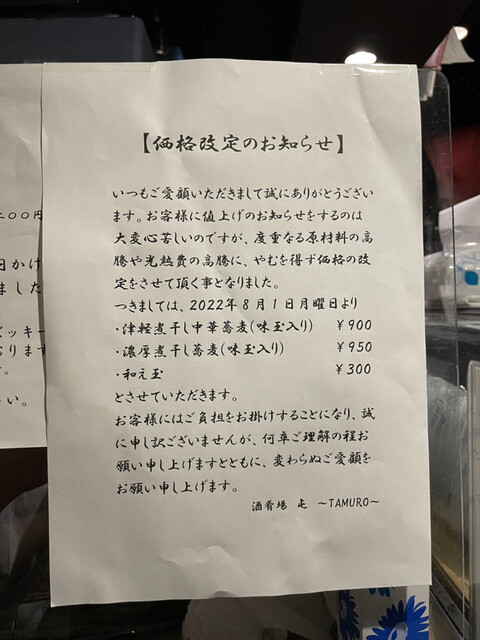 【価格改定のお知らせ】
いつもご愛顧いただきまして誠にありがとうござい
ます。お客様に値上げのお知らせをするのは
大変心苦しいのですが、度重なる原材料の高
騰や光熱費の高騰に、やむを得ず価格の改
定をさせて頂く事となりました。
つきましては、2022年8月1日月曜日より
・津軽煮干し中華蕎麦(味玉入り) ¥900
・濃厚煮干し蕎麦(味玉入り) ¥950
・和え玉 ¥300
とさせていただきます。
お客様にはご負担をお掛けすることになり、誠
に申し訳ございませんが、何卒ご理解の程お
願い申し上げますとともに、変わらぬご愛顧を
お願い申し上げます。
酒肴場 屯 ～TAMURO～
二〇〇円
日かけ
ました
ビッキー
おります
す。
い。